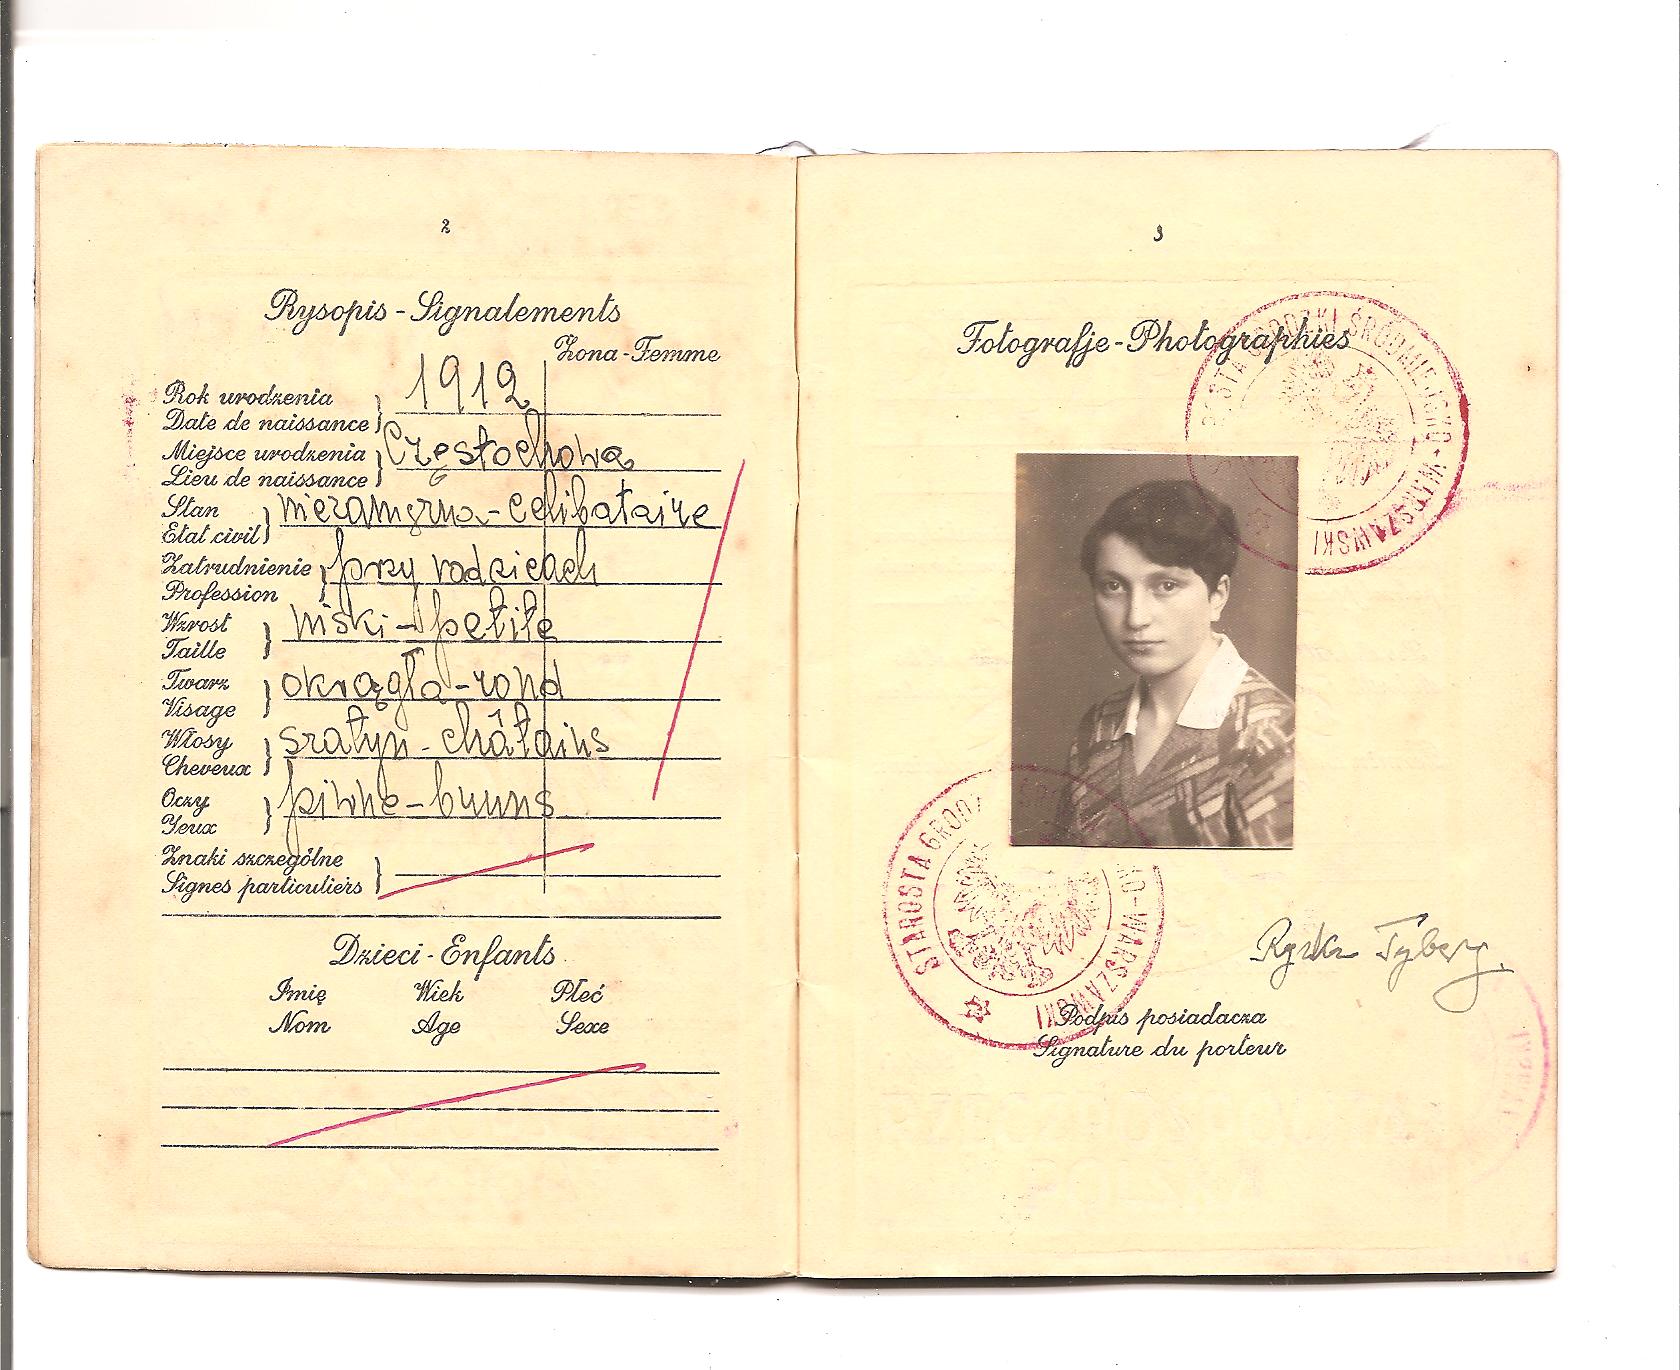 2
Rysopis - Signalements
Żona - Femme
Rok urodzenia
Date de naissance
1912
Miejsce urodzenia
Lieu de naissance
Częstochowa
Stan
Etat civil
niezamężna - celibataire
Zatrudnienie
Profession
przy rodzicach
Wzrost
Taille
niski - petite
Twarz
Visage
okrągła - rond
Włosy
Cheveux
szatyn - châtains
Oczy
Yeux
piwne - bruns
Znaki szczególne
Signes particuliers
Dzieci - Enfants
Imię Wiek Płeć
Nom Age Sexe
3
Fotografje - Photographies
STAROSTA GRODZKI ŚRÓDMIEJSKO - WARSZAWSKI
STAROSTA GRODZ
WARSZAWSKI
Tyberg.
Podpis posiadacza
Signature du porteur